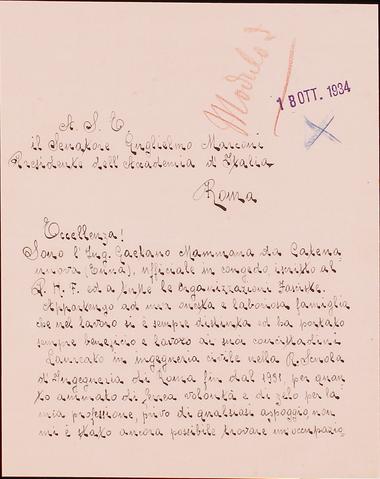 Modulo I
18 OTT. 1934
A. S. E
il Senatore Guglielmo Marconi
Presidente dell'Accademia d'Italia
Roma
Eccellenza!
Sono l'Ing. Gaetano Mammana da Catena
nuova (Enna), ufficiale in congedo, iscritto al
P. N. F. ed a tutte le Organizzazioni Fasciste.
Appartengo ad una onesta e laboriosa famiglia
che nel lavoro si è sempre distinta ed ha portato
sempre beneficio e lavoro ai suoi concittadini
Laureato in ingegneria civile nella R. Scuola
d'Ingegneria di Roma fin dal 1931, per quan
to animato di ferrea volontà e di zelo per la
mia professione, privo di qualsiasi appoggio, non
mi è stato ancora possibile trovare un'occupazio